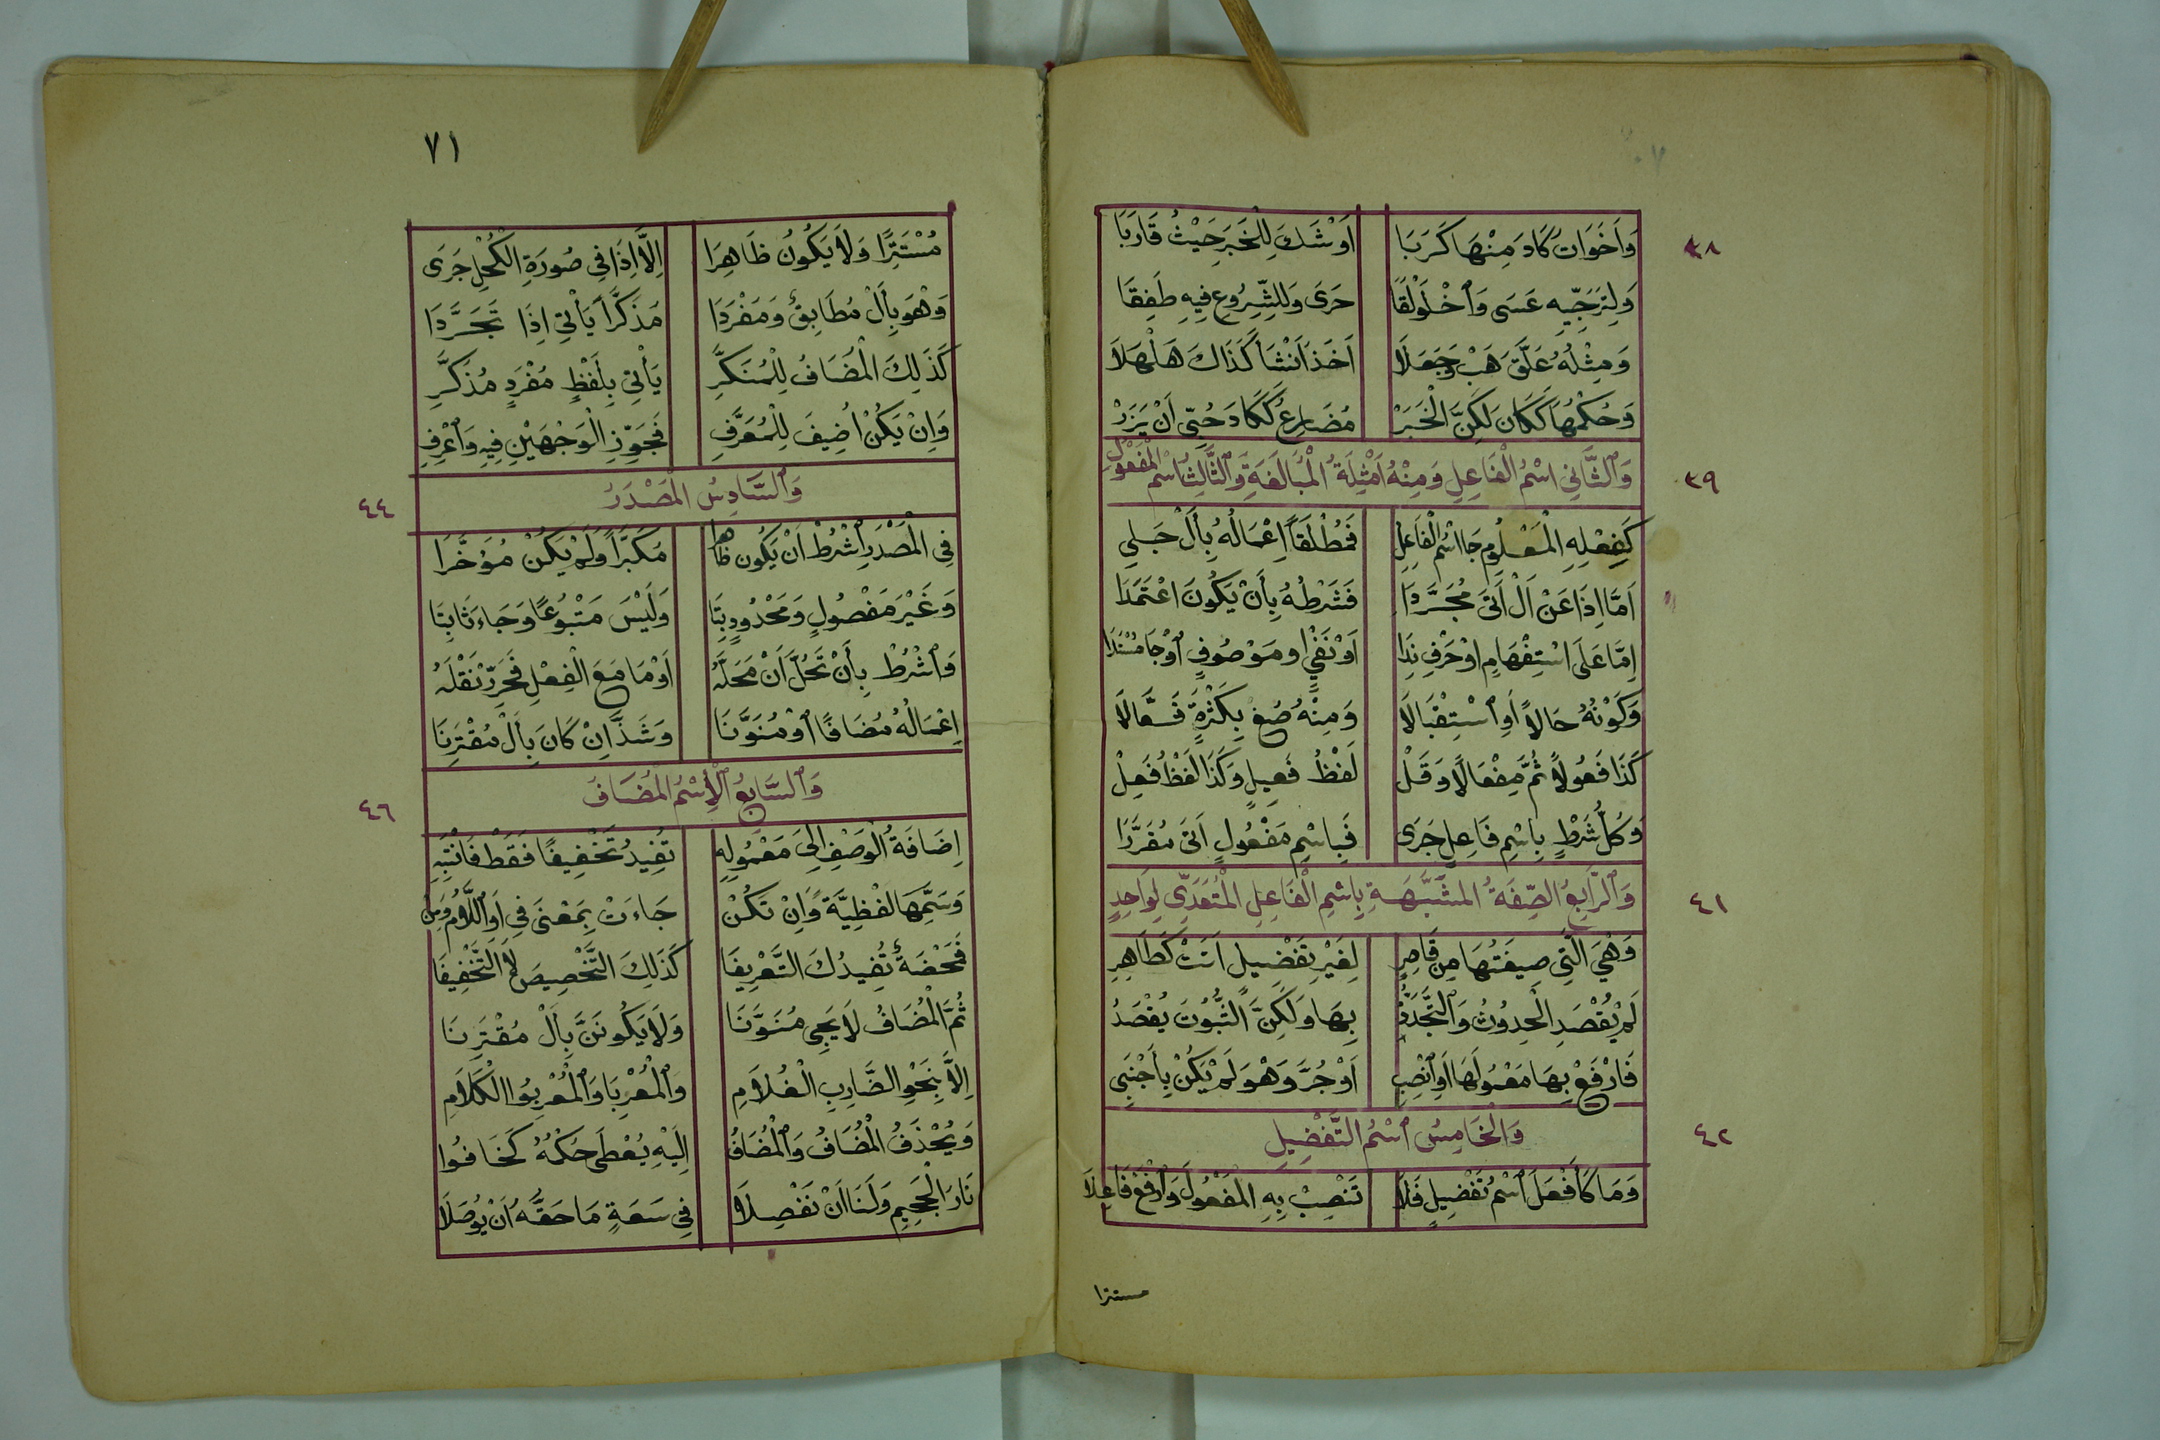 ٧٠
وَاَخَوَاتُ كَادَ مِنْهَا كَرَبَا اَوْشَكَ لِلْخَبَرِ حَيْثُ قَارَبَا
٣٨
وَلِتَرَجِّيهِ عَسَى وَٱخْلَوْلَقَا حَرَى وَلِلشُّرُوعِ فِيهِ طَفِقَا
وَمِثْلُهُ عَلَّقَ هَبْ وَجَعَلَا اَخَذَ اَنْشَأَ كَذَاكَ هَلْهَلَا
وَحُكْمُهَا كَكَانَ لَكِنَّ الْخَبَرْ مُضَارِعٌ كَكَادَ حُبِّي اَنْ يَزَرْ
وَٱلثَّانِي اسْمُ الْفَاعِلِ وَمِنْهُ اَمْثِلَةُ الْمُبَالَغَةِ وَٱلثَّالِثُ اسْمُ الْمَفْعُوْلِ
٣٩
كَفِعْلِهِ الْمَعْلُومِ جَا اسْمُ الْفَاعِلِ فَمُطْلَقًا اِعْمَالُهُ بِأَلْ جَلِي
اَمَّا اِذَا عَنْ اَلْ اَتَى مُجَرَّدَا فَشَرْطُهُ بِأَنْ يَكُونَ اعْتَمَدَا
اِمَّا عَلَى اسْتِفْهَامٍ اوْ حَرْفِ نِدَا اَوْ نَفْيٍ اوْ مَوْصُوفٍ ٱوْ جَا مُسْنَدَا
وَكَوْنُهُ حَالًا اَوِ ٱسْتِقْبَالَا وَمِنْهُ صُغْ بِكَثْرَةٍ فَعَّالَا
كَذَا فَعُولًا ثُمَّ مِفْعَالًا وَقَلْ لَفْظُ فَعِيلٍ وَكَذَا لَفْظُ فَعِلْ
وَكُلُّ شَرْطٍ بِاسْمِ فَاعِلٍ جَرَى فَبِاسْمِ مَفْعُولٍ اَتَى مُقَرَّرَا
وَٱلرَّابِعُ الصِّفَةُ الْمُشَبَّهَةِ بِاسْمِ الْفَاعِلِ الْمُتَعَدِّي لِوَاحِدٍ
٤١
وَهْيَ الَّتِي صِيغَتُهَا مِنْ قَاصِرِ لِغَيْرِ تَفْضِيلٍ اَتَتْ كَطَاهِرِ
لَمْ يُقْصَدِ الْحُدُوثُ وَٱلتَّجَدُّدُ بِهَا وَلَكِنَّ الثُّبُوتَ يُقْصَدُ
فَارْفَعْ بِهَا مَعْمُولَهَا اَوِ ٱنْصِبِ اَوْ جُرَّ وَهْوَ لَمْ يَكُنْ بِأَجْنَبِي
وَالْخَامِسُ ٱسْمُ التَّفْضِيلِ
٤٢
وَمَا كَأَفْعَلَ ٱسْمُ تَفْضِيلٍ فَلَا تَنْصِبْ بِهِ الْمَفْعُولَ وَٱرْفَعْ فَاعِلَا
مستترا
٧١
مُسْتَتِرًا وَلَا يَكُونُ ظَاهِرَا اِلَّا اِذَا فِي صُورَةِ الْكُحْلِ جَرَى
وَهْوَ بِأَلْ مُطَابِقٌ وَمُفْرَدَا مُذَكَّرًا يَأْتِي اِذَا تَجَرَّدَا
كَذَلِكَ الْمُضَافُ لِلْمُنَكَّرِ يَأْتِي بِلَفْظٍ مُفْرَدٍ مُذَكَّرِ
وَاِنْ يَكُنْ اُضِيفَ لِلْمُعَرَّفِ فَجَوِّزِ الْوَجْهَيْنِ فِيهِ وَٱعْرِفِ
وَٱلسَّادِسُ الْمَصْدَرُ
٤٤
فِي الْمَصْدَرِ ٱشْرُطْ اَنْ يَكُونَ ظَاهِرا مُكَبَّرًا وَلَمْ يَكُنْ مُؤَخَّرَا
وَغَيْرَ مَفْصُولٍ وَمَحْدُودٍ بِتَا وَلَيْسَ مَتْبُوعًا وَجَاءَ ثَابِتَا
وَٱشْرُطْ بِأَنْ تَحُلَّ اَنْ مَحَلَّهُ اَوْ مَا مَعَ الْفِعْلِ فَحَرِّرْ نَقْلَهُ
اِعْمَالُهُ مُضَافًا ٱوْ مُنَوَّنَا وَشَذَّ اِنْ كَانَ بِأَلْ مُقْتَرِنَا
وَٱلسَّابِعُ ٱلْاِسْمُ الْمُضَافُ
٤٦
اِضَافَةُ الْوَصْفِ اِلَى مَعْمُولِهِ تُفِيدُ تَخْفِيفًا فَقَطْ فَانْتَبِهِ
وَسَمِّهَا لَفْظِيَّةً وَاِنْ تَكُنْ جَاءَتْ بِمَعْنَى فِي اَوِ ٱللَّامِ وَمِنْ
فَمَحْضَةٌ تُفِيدُكَ التَّعْرِيفَا كَذَلِكَ التَّخْصِيصَ لَا التَّخْفِيفَا
ثُمَّ الْمُضَافُ لَا يَجِي مُنَوَّنَا وَلَا يَكُونَنَّ بِأَلْ مُقْتَرِنَا
اِلَّا بِنَحْوِ الضَّارِبِ الْغُلَامِ وَٱلْمُعْرِبَا وَٱلْمُعْرِبُوا الْكَلَامِ
وَيُحْذَفُ الْمُضَافُ وَٱلْمُضَافُ اِلَيْهِ يُعْطَى حُكْمُهُ كَخَافُوا
نَارَ الْجَحِيمِ وَلَنَا اَنْ نَفْصِلَا فِي سَعَةٍ مَا حَقُّهُ اَنْ يُوصَلَا